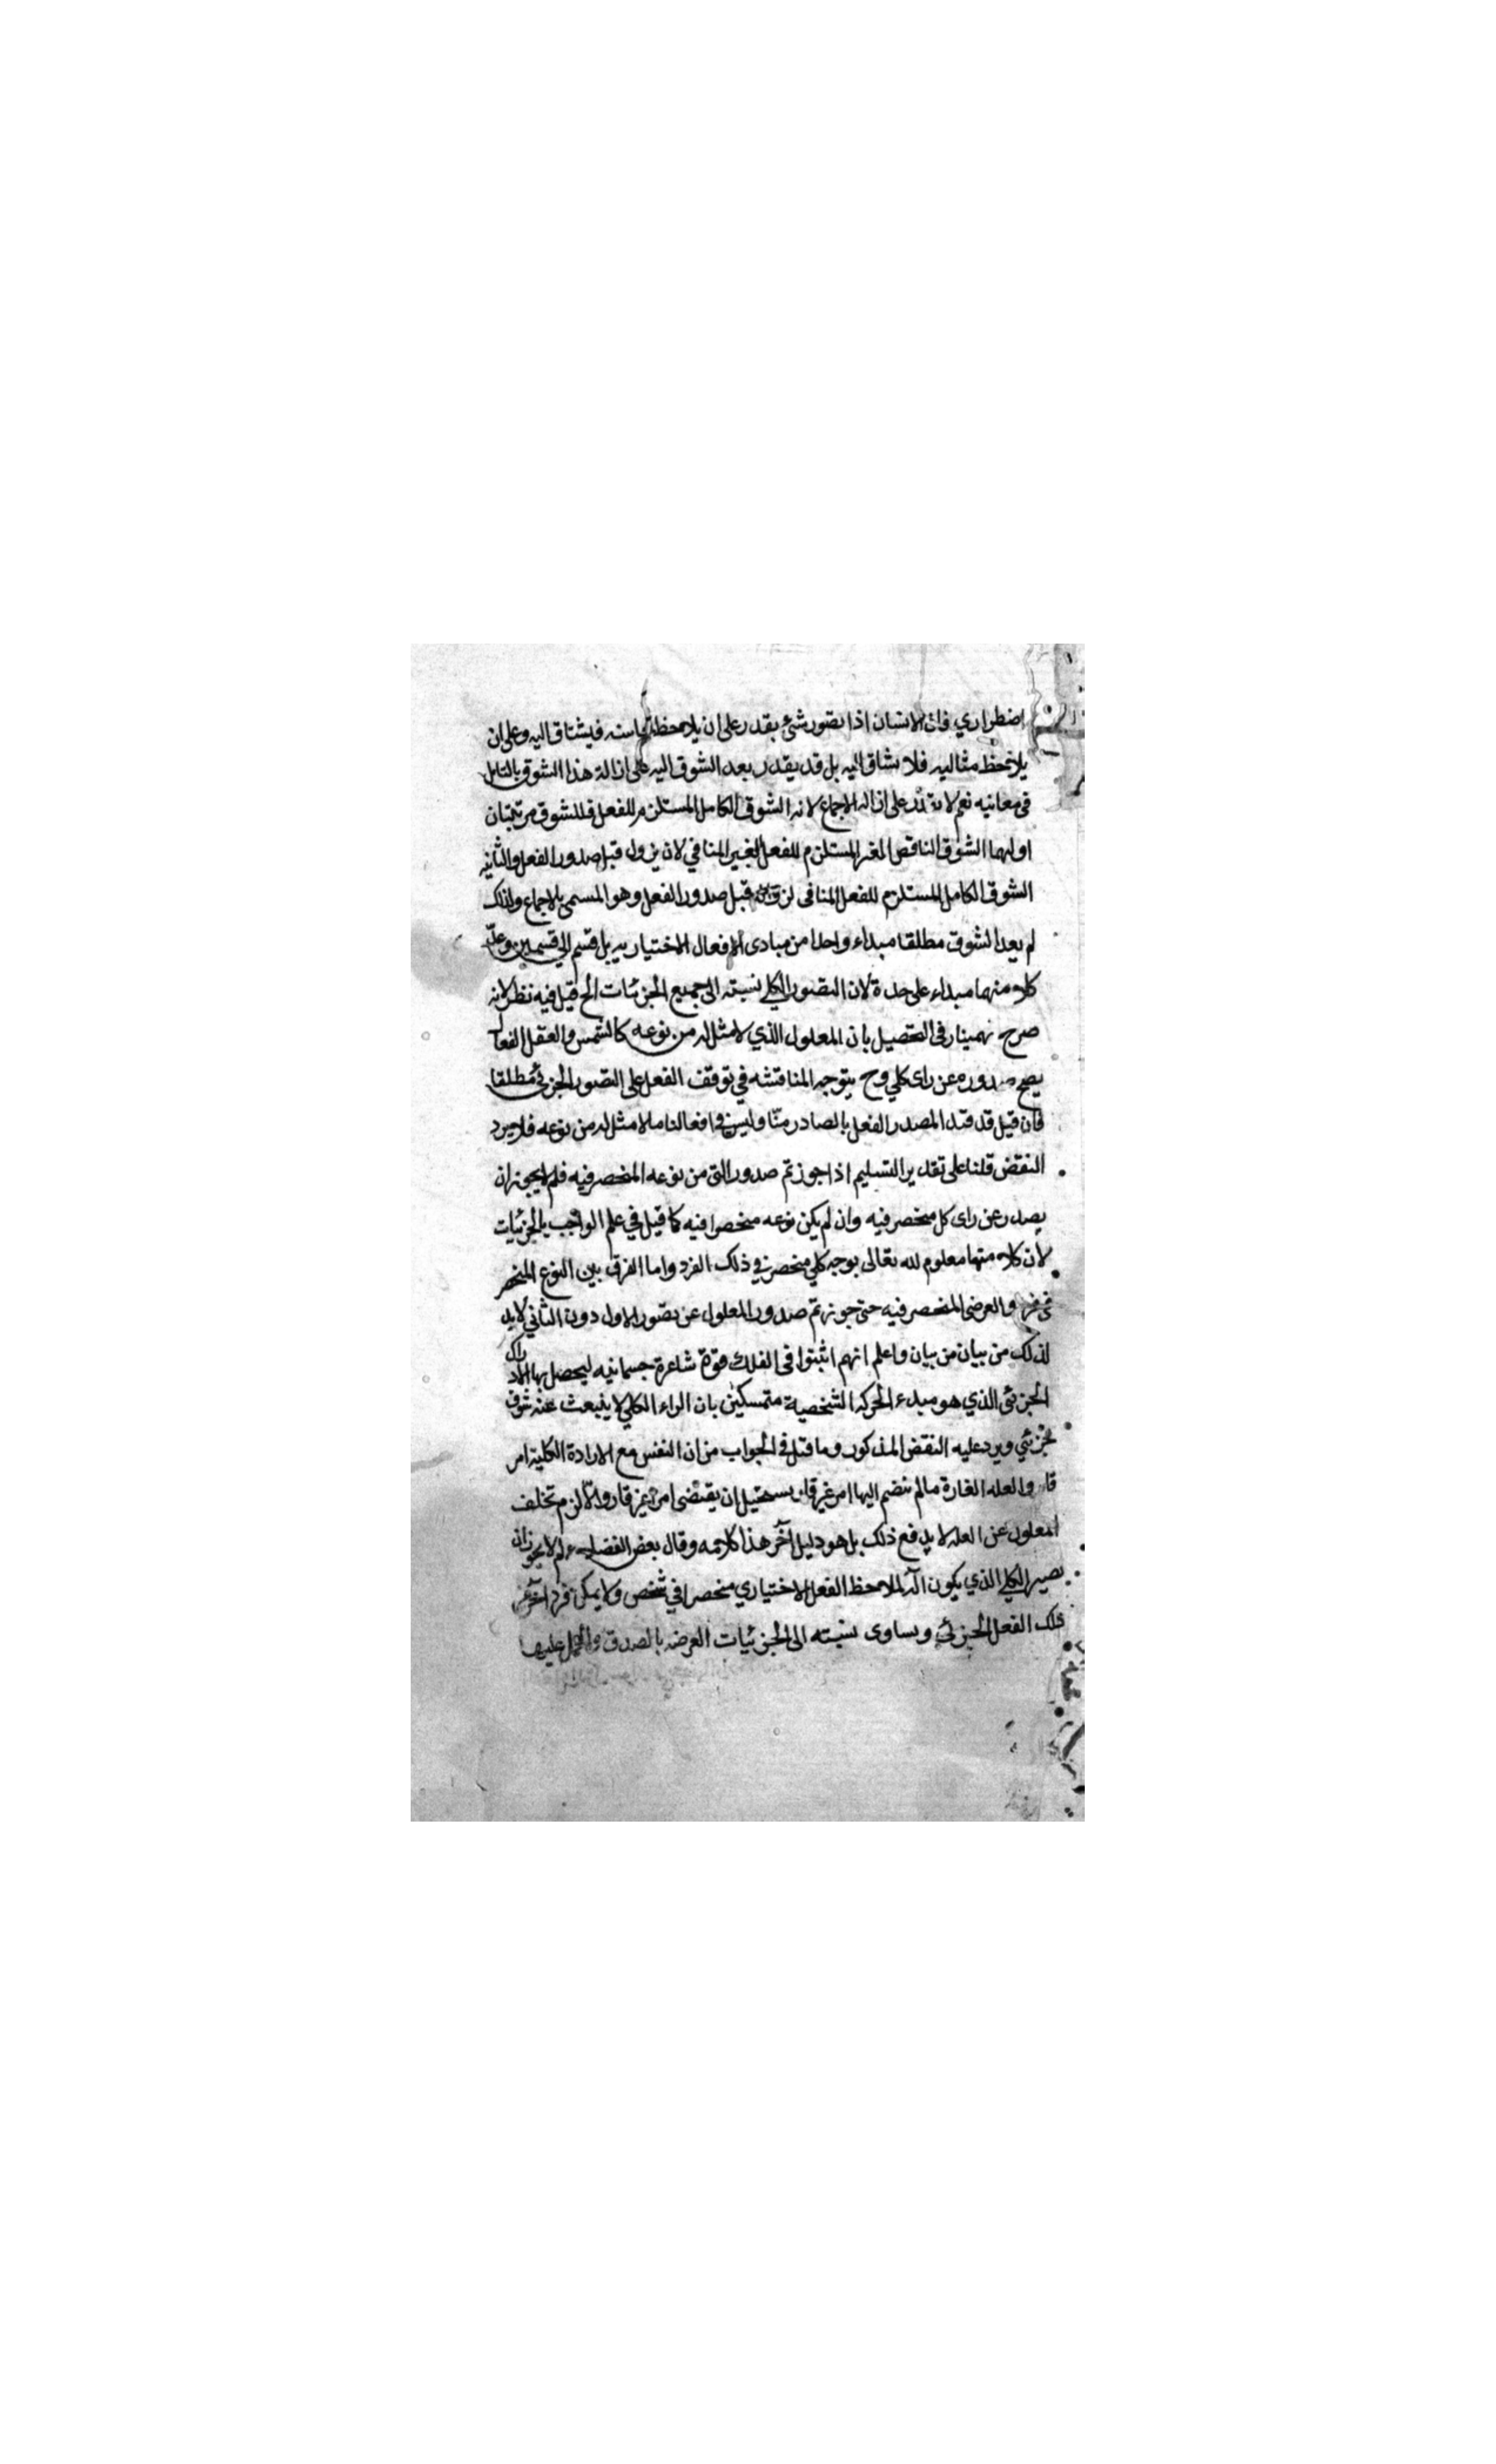 اضطراري فان الانسان اذا تصور شئ يقدر على ان يلاحظ محاسنه فيشتاق اليه وعلى ان
يلاحظ مثاليه فلا يشاق اليه بل قد يقدر بعد الشوق اليه على ازالة هذا الشوق بالتامل
فى معانيه نعم لا يقدر على ازاله الاجماع لانه الشوق الكامل المستلزم للفعل فللشوق مرتبتان
اوليهما الشوق الناقص الغير المستلزم للفعل الغير المنافي لان يزول قبل صدور الفعل والثانيه
الشوق الكامل المستلزم للفعل المنافى لزواله قبل صدور الفعل وهو المسمى بالاجماع ولذلك
لم يعد الشوق مطلقا مبداء واحدا من مبادى الافعال الاختياريه بل قسم الى قسمين وعد
كلا منهما مبداء على حدة لان التصور الكلي نسبته الى جميع الجزئيات الخ قيل فيه نظر لانه
صرح بهمنيار فى التحصيل بان المعلول الذي لا مثل له من نوعه كالشمس والعقل الفعال
يصح صدوره عن راى كلي وح يتوجه المناقشه في توقف الفعل على التصور الجزئي مطلقا
فان قيل قد قيد المصدر الفعل بالصادر منّا وليس في افعالنا ما لا مثل له من نوعه فلا يرد
النقض قلنا على تقدير التسليم اذا جوزتم صدور الشئ من نوعه المنحصر فيه فلم لا يجوز ان
يصدر عن راى كل منحصر فيه وان لم يكن نوعه منحصرا فيه كما قيل في علم الواجب بالجزئيات
لان كلا منها معلوم لله تعالى بوجه كلي منحصر في ذلك الفرد واما الفرق بين النوع المنحصر
فى فرد والعرضى المنحصر فيه حتى جوزتم صدور المعلول عن تصور الاول دون الثاني لا بد
لذلك من بيان من بيان واعلم انهم اثبتوا فى الفلك قوة شاعرة جسمانيه ليحصل بها الادراك
الجزئى الذي هو مبدء الحركه الشخصية متمسكين بان الراء الكلي لا ينبعث عنه شوق
جزئي ويرد عليه النقض المذكور وما قيل في الجواب من ان النفس مع الارادة الكلية امر
قار والعله القارة ما لم ينضم اليها امر غير قار يستحيل ان يقتضى امرا غير قار والا لزم تخلف
المعلول عن العله لا يدفع ذلك بل هو دليل آخر هذا كلامه وقال بعض الفضلاء لم لا يجوز ان
يصير الكلي الذي يكون آلة لملاحظ الفعل الاختياري منحصرا في شخص ولا يمكن فرد آخر غير
ذلك الفعل الجزئي ويساوى نسبته الى الجزئيات الفرضه بالصدق والحمل عليها